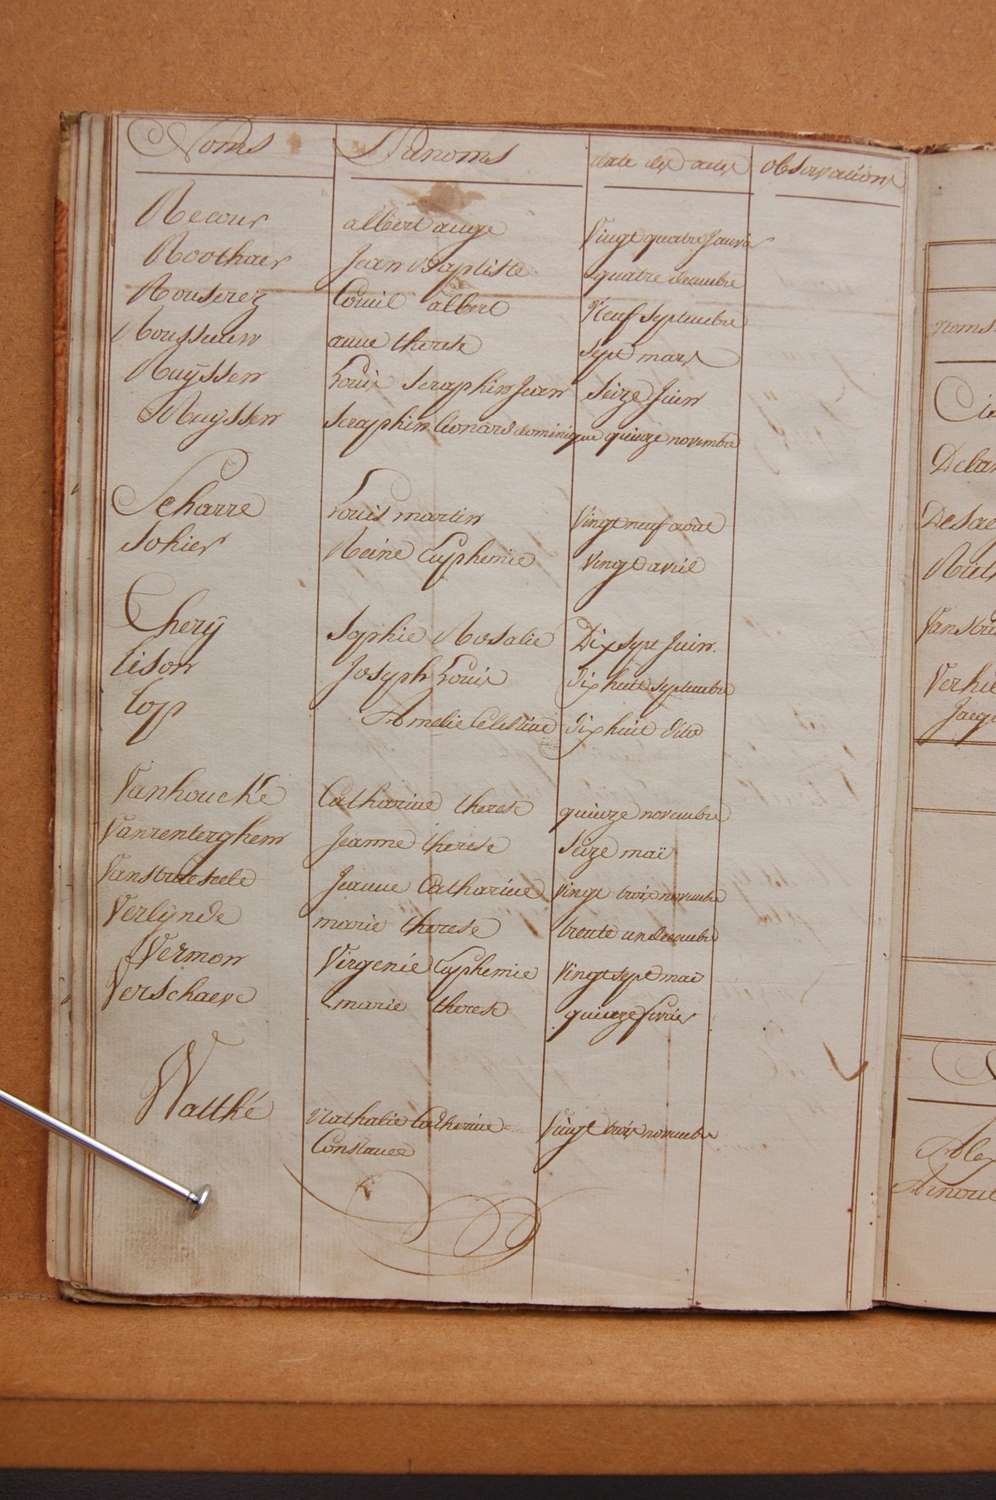 Noms Prenoms date des actes observations
Recour albert auge Vingt quatre Janvier
Roothaer Jean Baptiste quatre decembre
Rouserez Louis albert Neuf septembre
anne therese sept mars
Ruÿssen Louis Seraphin Jean Seize Juin
Ruyssen Seraphin Léonard dominique quinze novembre
Scharre Louis martin Vingt neuf août
Sohier Reine Euphemie Vingt avril
Therÿ Sophie Rosalie Dix sept Juin.
tison Joseph Louis Dix huit septembre
top Amelie Celestine Dix huit dito
Vanhoucke Catharine therese quinze novembre
Vanrenterghem Jeanne therese Seize maï
Vanstraeseele Jeanne Catharine Vingt trois novembre
Verlÿnde marie therese trente un decembre
Vermon Virgenie Euphemie Vingt sept mai
Verschaeve marie therese quinze fevrier
Watthé Nathalie Catherine Vingt trois novembre
Constance
noms
Verhie
Arnoul